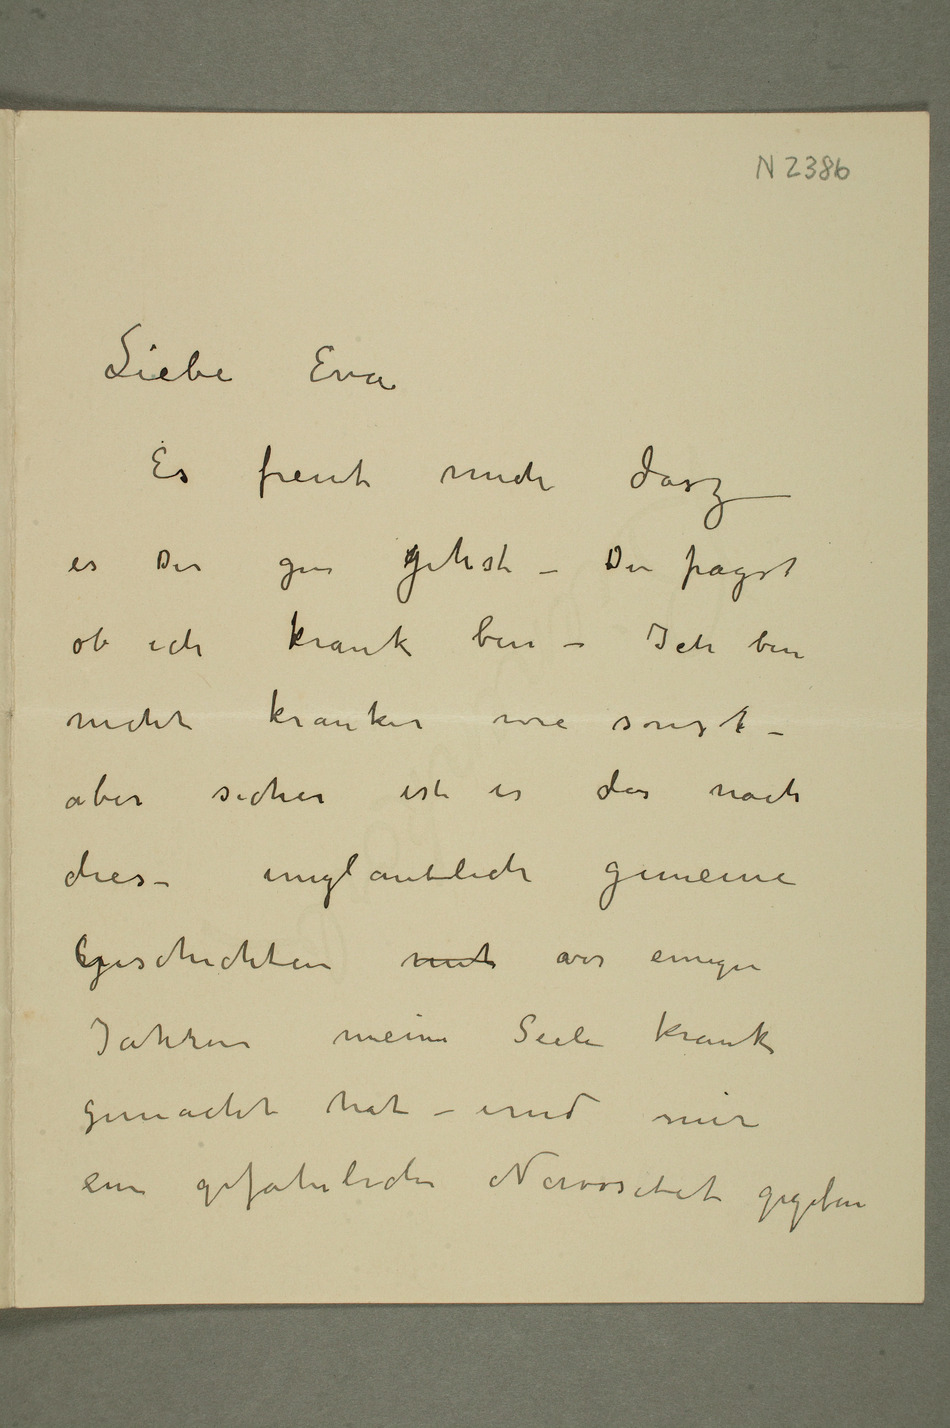 N 2386
Liebe Eva
Es freut mich dasz
es Dir gu gehst – Du fragst
ob ich krank bin – Ich bin
nicht kranker wie sonst –
aber sicher ist es das nach
dies– unglaublich gemeine
Geschichten mit vor einige
Jahren meine Seele krank
gemacht hat – und mir
eine gefahrliche Nervositet gegeben